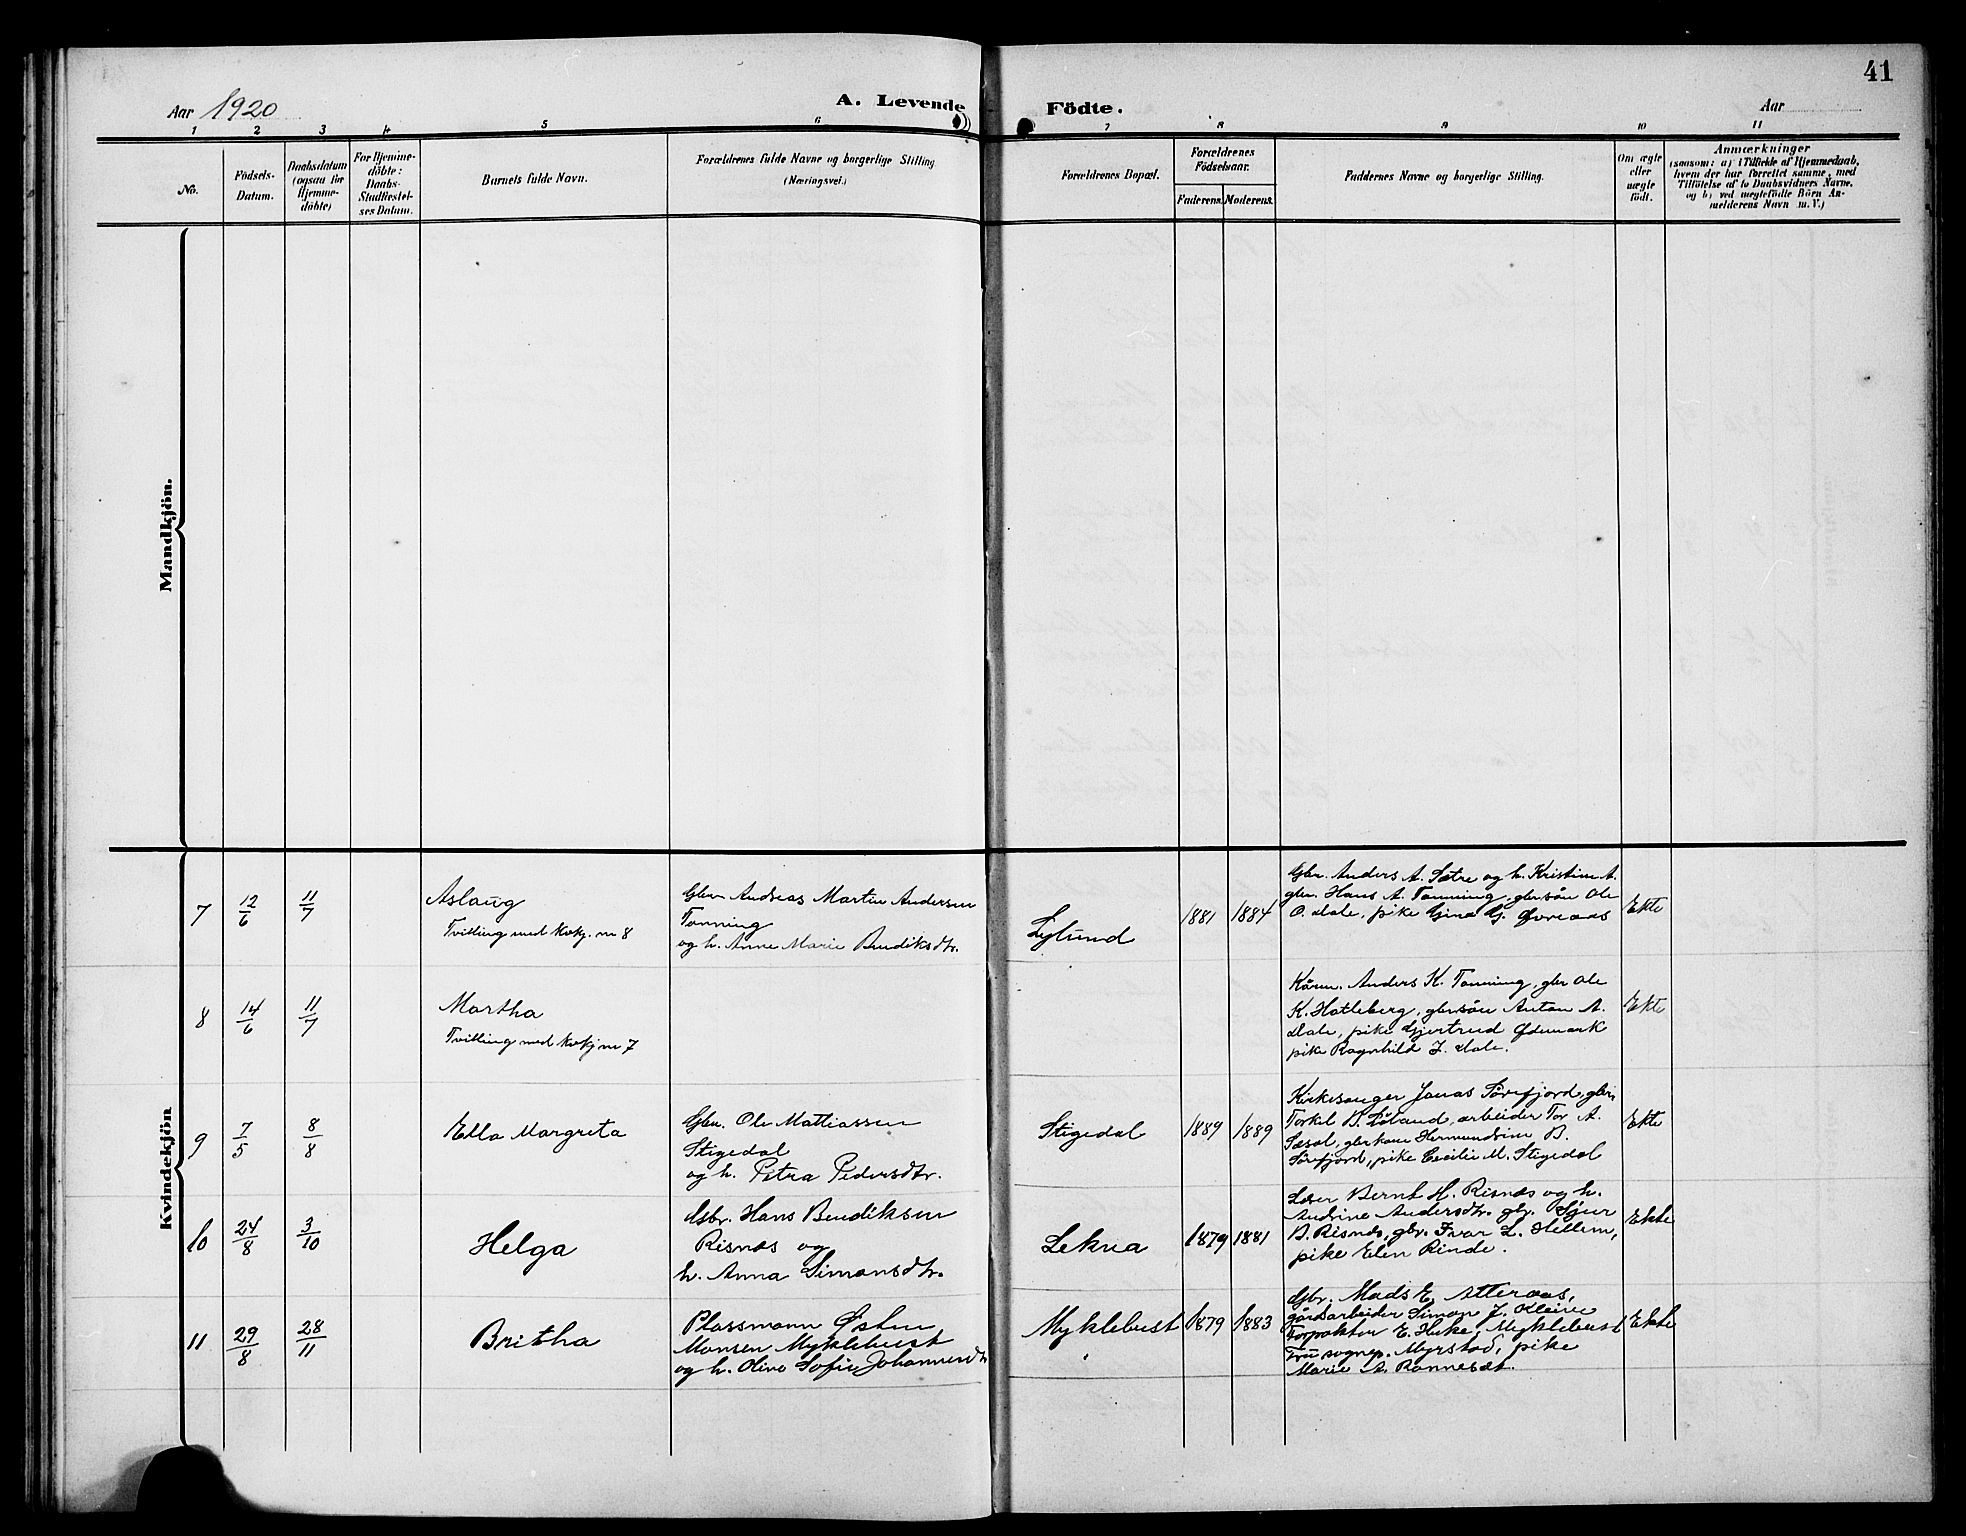 41
Aar 1920
A. Levende Födte.
Aar
1 2 3 4 5 6 7 8 9 10 11
No.
Födsels-
Datum.
Daabsdatum
(ogsaa for
Hjemme-
döbte)
For Hjemme-
döbte:
Daabs-
Stadfæstel-
ses Datum.
Barnets fulde Navn.
Forældrenes fulde Navne og borgerlige Stilling
(Næringsvei.)
Forældrenes Bopæl.
Forældrenes
Födselsaar.
Faderens. Moderens.
Faddernes Navne og borgerlige Stilling.
Om ægte
eller
uægte
födt.
Anmærkninger
(saasom: a) i Tilfælde af Hjemmedaab,
hvem der har forrettet samme, med
Tilföielse af to Daabsvidners Navne,
og b) ved uægtefödte Börn An-
melderens Navn m. V.)
Mandkjön.
Kvindekjön
7
12/6
11/7
Aslaug
Tvilling med kvkj. nr 8
Gbr. Andreas Martin Andersen
Tonning
og h. Anne Marie Bendiksdtr.
Lylund
1881
1884
Gbr. Anders A. Sætre og h. Kristine A.
gbr. Hans A. Tonning, gbrsön Ole
O. Dale, pike Gina G. Övreaas
Ekte
8
14/6
11/7
Martha
Tvilling med kvkj nr 7
Kårm. Anders K. Tonning, gbr Ole
K. Hatleberg, gbrsön Anton A.
Dale, pike Gjertrud Ødemark
pike Ragnhild J. Dale.
Ekte
9
7/5
8/8
Ella Margreta
Gbr. Ole Mattiassen
Stigedal
og h. Petra Pedersdtr.
Stigedal
1889
1889
Kirkesanger Jonas Sörefjord, gbr.
Torkel B. Löland, arbeider Tor A.
Sæsol, gbrkone Hermundine B.
Sörefjord, pike Cecilie M. Stigedal
Ekte
10
24/8
3/10
Helga
Gbr. Hans Bendiksen
Risnes og
h. Anna Simonsdtr.
Lekna
1879
1881
Lærer Bernt H. Risnes og h.
Andrine Andersdtr. gbr. Sjur
B. Risnes, gbr. Ivar L. Hellem,
pike Elen Rinde.
Ekte
11
29/8
28/11
Britha
Plassmann Østen
Monsen Myklebust
og h. Oline Sofie Johannesdtr
Myklebust
1879
1883
Gbr. Mads E. Atteraas,
gårdsarbeider Simon J. Kleive
Forpakter E. Huke, Myklebust
Fru sognep. Myrstad, pike
Marie A. Rannesæt.
Ekte